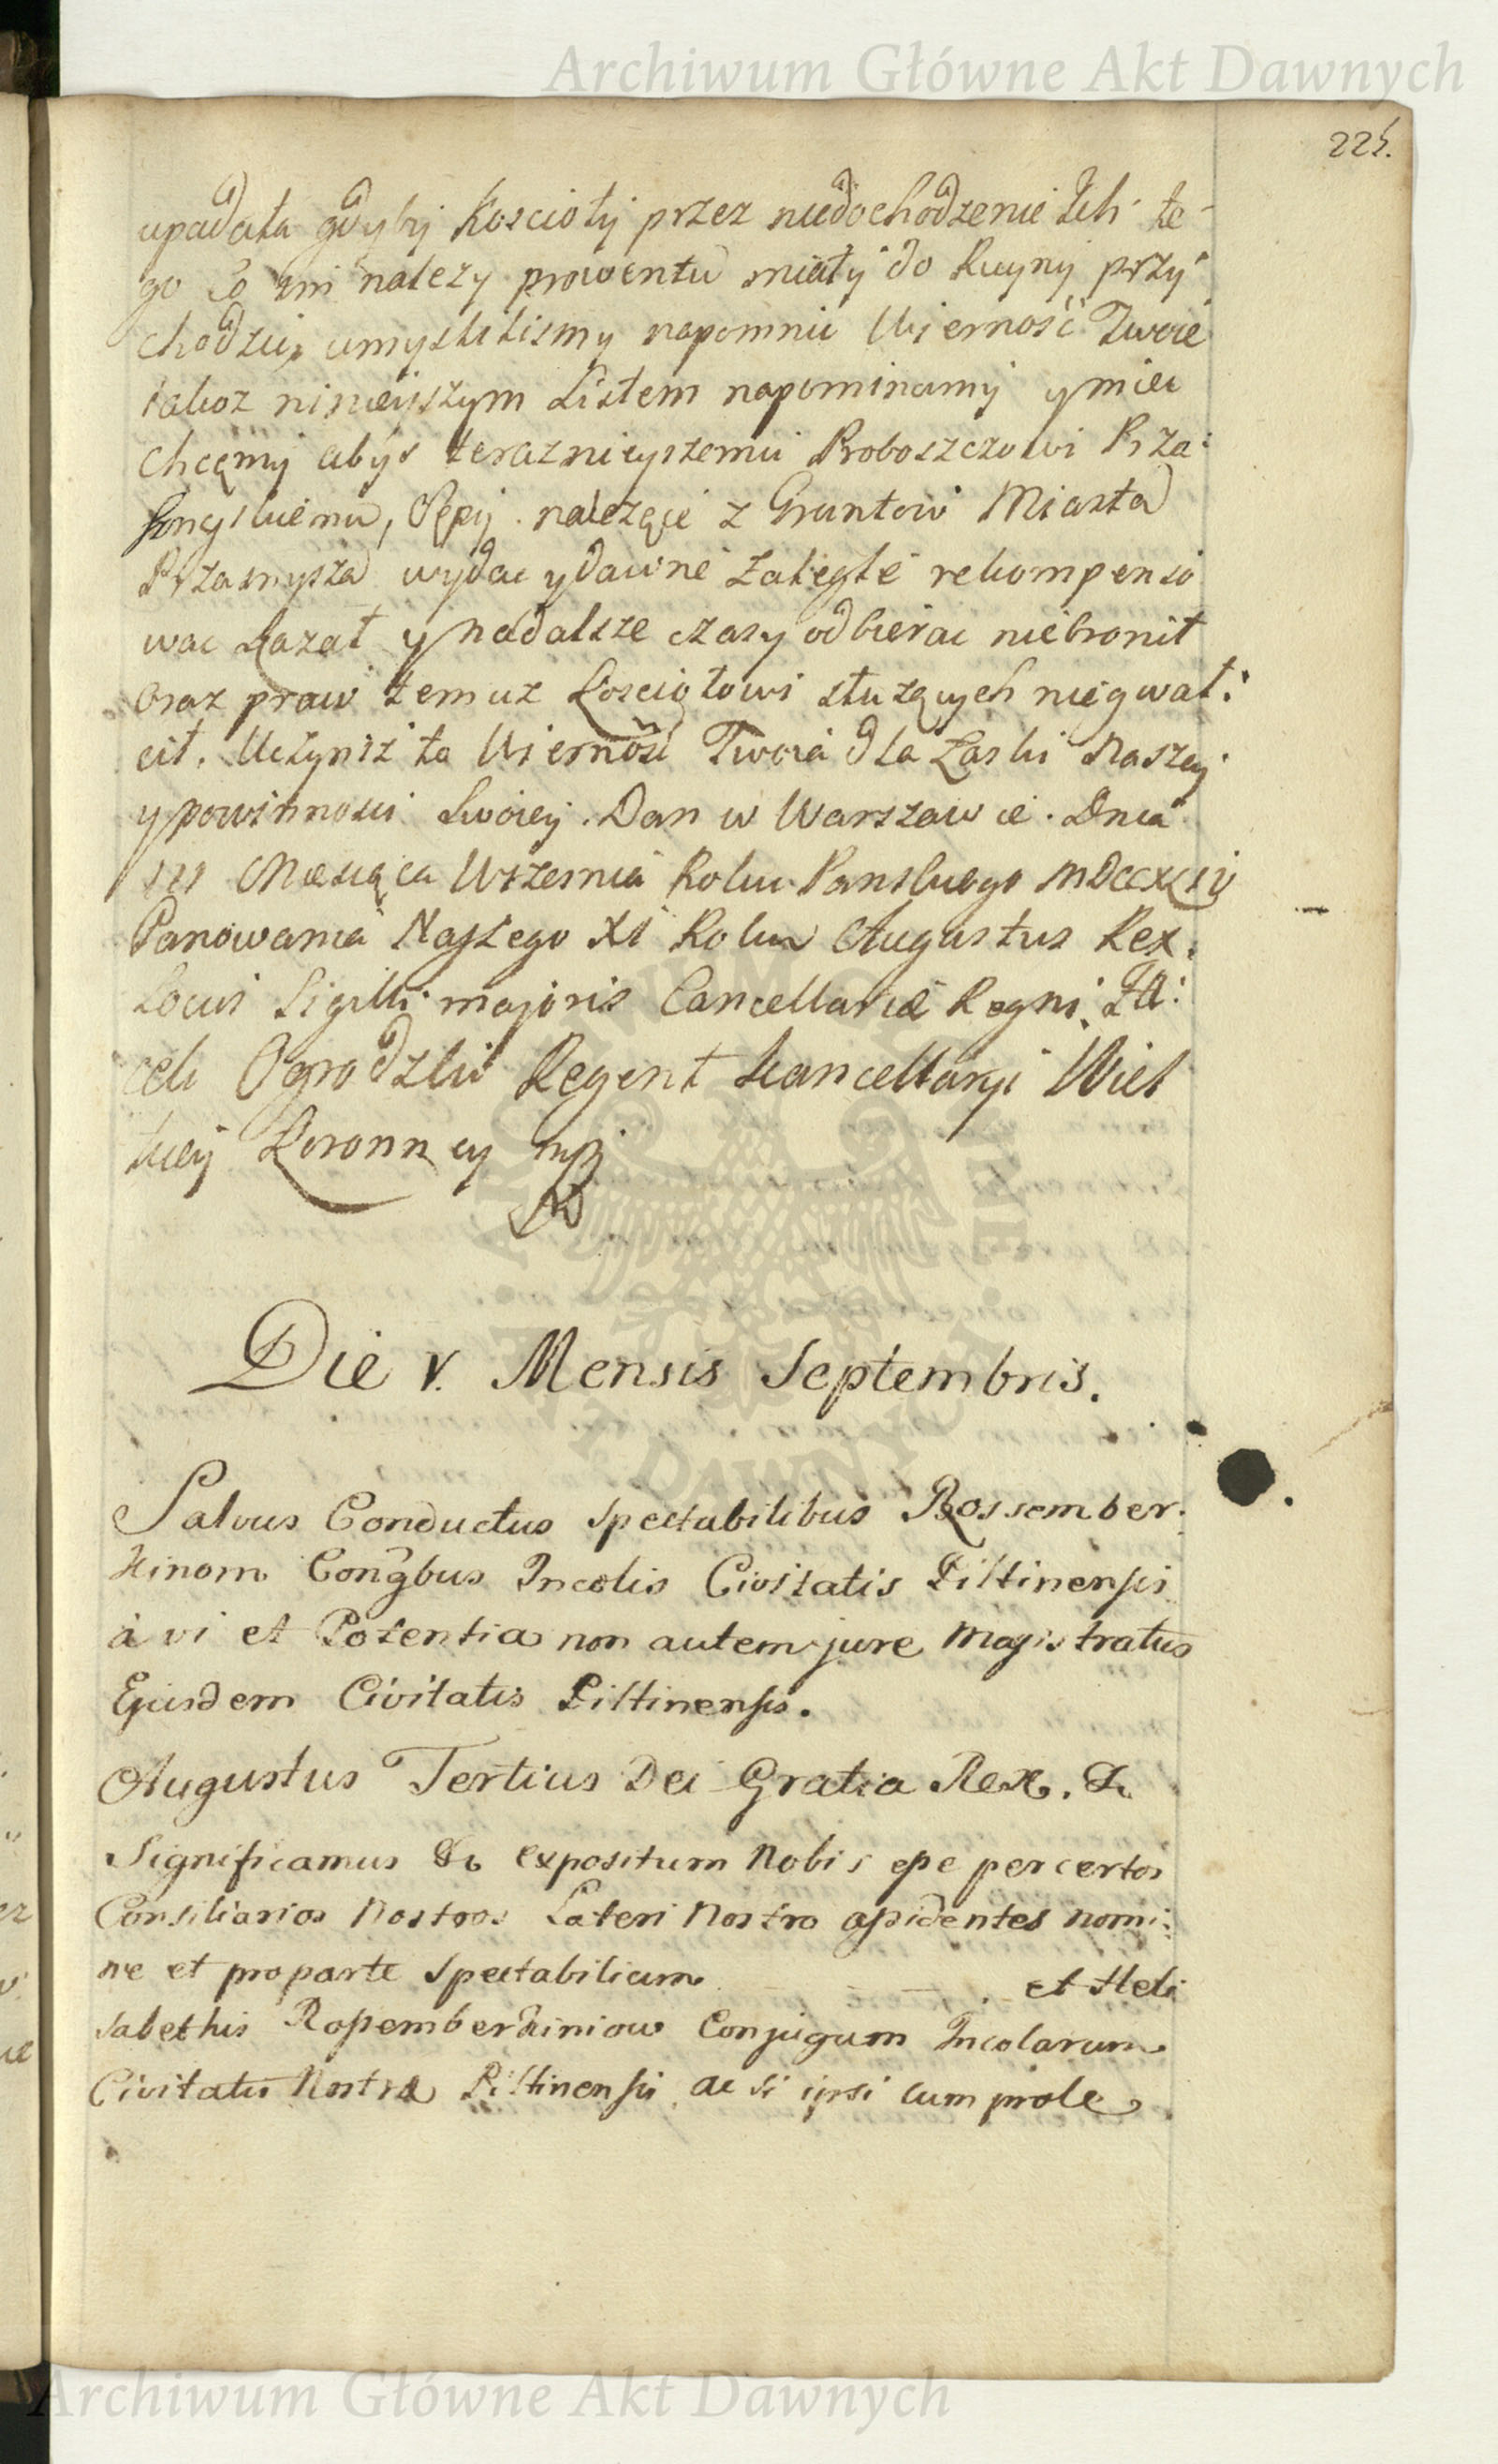 Archiwum Główne Akt Dawnych
225.
upadała gdyby Koscioły przez niedochodzenie Ich te-
go co im nalezy prowentu miały do Ruyny przy
chodzic, umyslilismy napomnic Wierność Twoię
iakoz ninieyszym Listem napominamy y miec
chcęmy abyś teraznieyszemu Proboszczowi Prza:
snyskiemu, Sępy nalezące z Gruntow Miasta
Przasnysza wydac y dawne zaległe rekompenso
wac kazał y nadalsze czasy odbierac niebronił
oraz praw temuz Kosciołowi słuzących niegwał:
cił. Uczynisz to Wierność Twoia dla Łaski Naszey
y powinnosci Swoiey. Dan w Warszawie. Dnia
III Miesiąca Wrzesnia Roku Panskiego MDCCXLIV
Panowania Naszego XI Roku Augustus Rex.
Locus Sigilli majoris Cancellariæ Regni.
Ogrodzki Regent Kancellaryi Wiel
kiey Koronney mp
Die V. Mensis Septembris.
Salvus Conductus Spectabilibus Rossember:
kinom Congbus Incolis Civitatis Piltinensis
à vi et Potentia non autem jure Magistratus
Ejusdem Civitatis Piltinensis.
Augustus Tertius Dei Gratia Rex. &
Significamus & expositum Nobis esse per certos
Consiliarios Nostros Lateri Nostro assidentes nomi:
ne et pro parte Spectabilium et Heli
sabethis Rossemberkiniow Conjugum Incolarum
Civitatis Nostræ Piltinensis ac si ipsi cum prole
ARCHIWUM
AKT DAWNYCH
Archiwum Główne Akt Dawnych